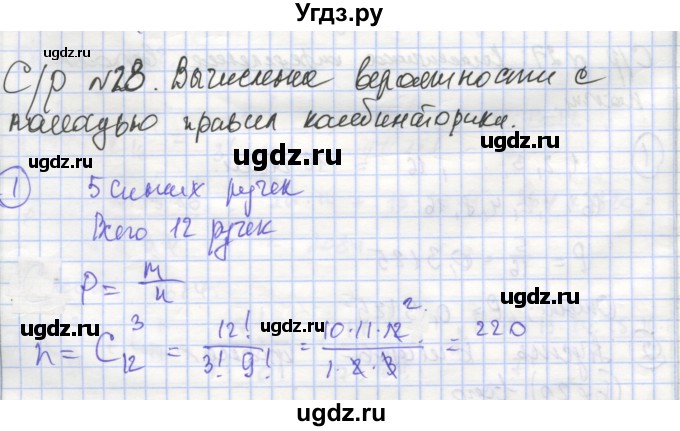 Угдз.ру
ugdz.ru ugdz.ru
С/р №28. Вычисление вероятности с
помощью правил комбинаторики.
ugdz.ru
ugdz.ru ugdz.ru
1 5 синих ручек
Всего 12 ручек
P = m/n
ugdz.ru ugdz.ru ugdz.ru
n = C₁₂³ = 12!/(3! 9!) = (10·11·12 2)/(1·2·3) = 220
ugdz.ru
ugdz.ru